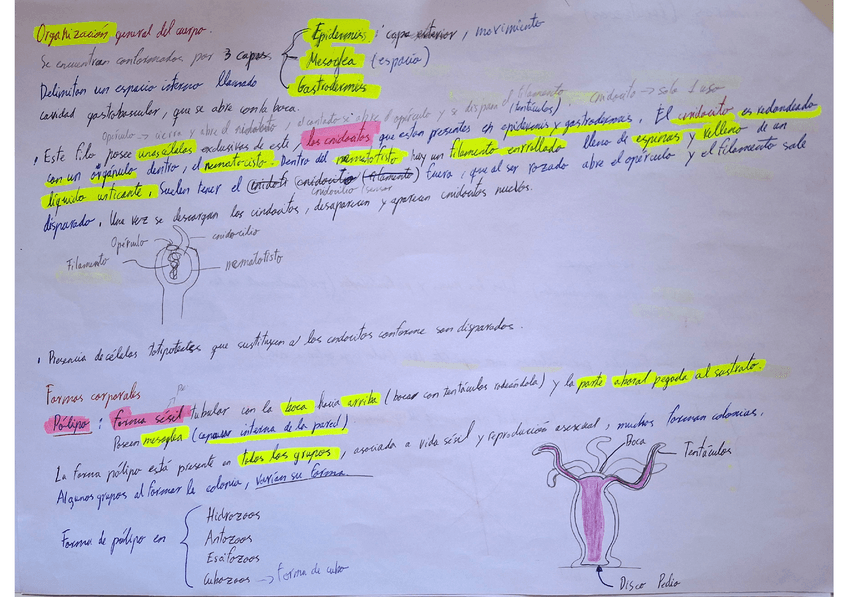 Organización general del cuerpo.
Se encuentran conformados por 3 capas
Epidermis: capa exterior, movimiento
Mesoglea (espacio)
Gastrodermis
Delimitan un espacio interno llamado
cavidad gastrovascular, que se abre con la boca.
Opérculo → cierra y abre el nematocisto
al contacto se abre el opérculo y se dispara el filamento
cnidocito → solo 1 uso
(tentáculos)
• Este filo posee unas células exclusivas de este, los cnidocitos que están presentes en epidermis y gastrodermis. El cnidocito es redondeado
con un orgánulo dentro, el nematocisto. Dentro del nematocisto hay un filamento enrollado lleno de espinas y relleno de un
líquido urticante. Suelen tener el cnidocilio (filamento) fuera, que al ser rozado abre el opérculo y el filamento sale
cnidocilio / sensor
disparado. Una vez se descargan los cnidocitos, desaparecen y aparecen cnidocitos nuevos.
Opérculo
cnidocilio
Filamento
nematocisto
• Presencia de células totipotentes que sustituyen a los cnidocitos conforme son disparados.
Formas corporales
Pólipo: forma sésil tubular con la boca hacia arriba (boca con tentáculos rodeándola) y la parte aboral pegada al sustrato.
Poseen mesoglea (capa interna de la pared)
La forma pólipo está presente en todos los grupos, asociada a vida sésil y reproducción asexual, muchos forman colonias.
Algunos grupos al formar la colonia, varían su forma
Forma de pólipo en
Hidrozoos
Antozoos
Escifozoos
Cubozoos → forma de cubo
Boca
Tentáculos
Disco Pedio